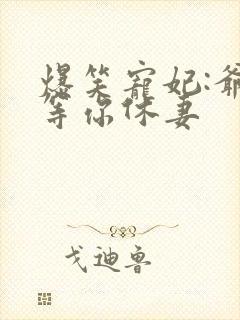 爆笑寵妃:爺
等你休妻
戈迪鲁